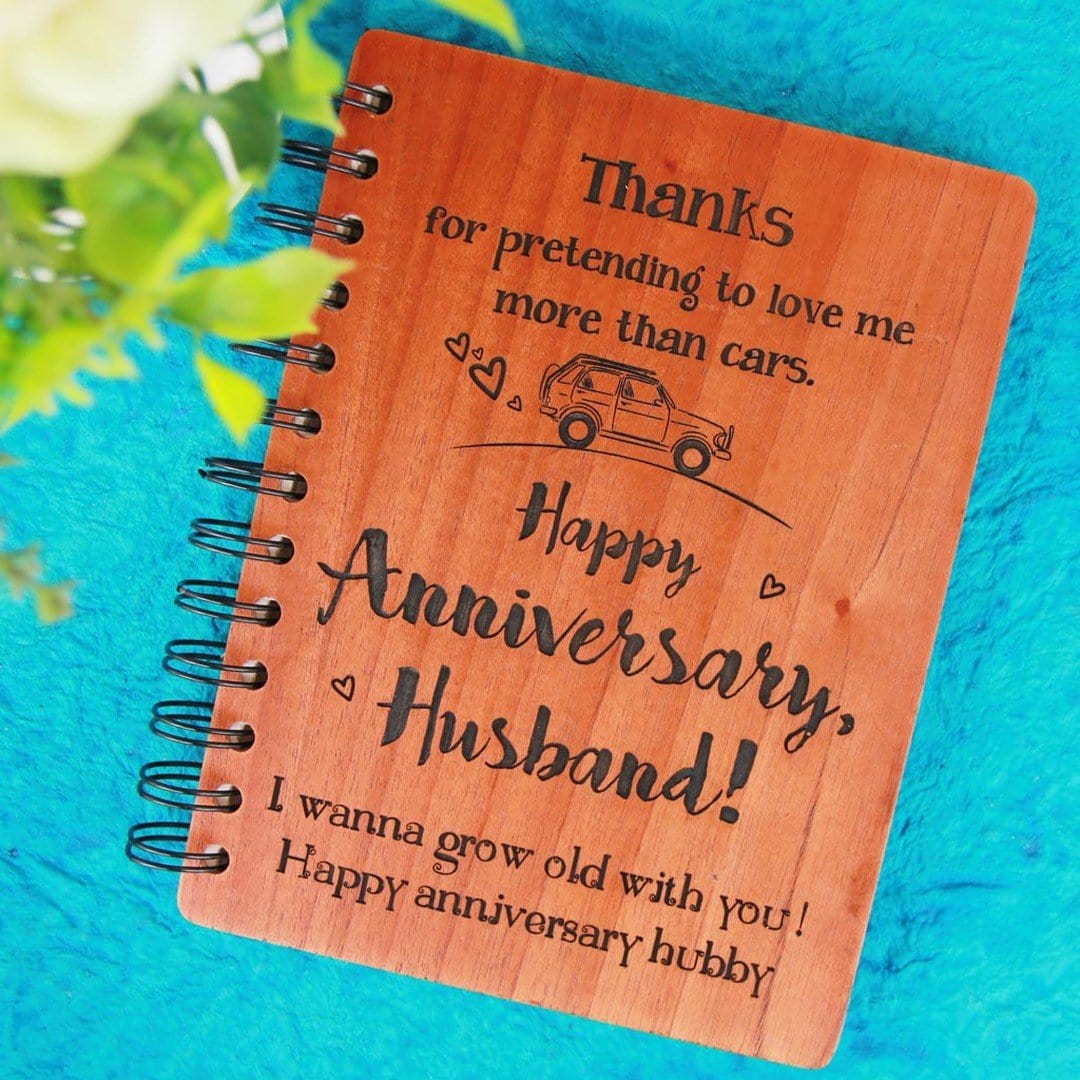 Thanks
for pretending to love me
more than cars.
Happy
Anniversary,
Husband!
I wanna grow old with you!
Happy anniversary hubby